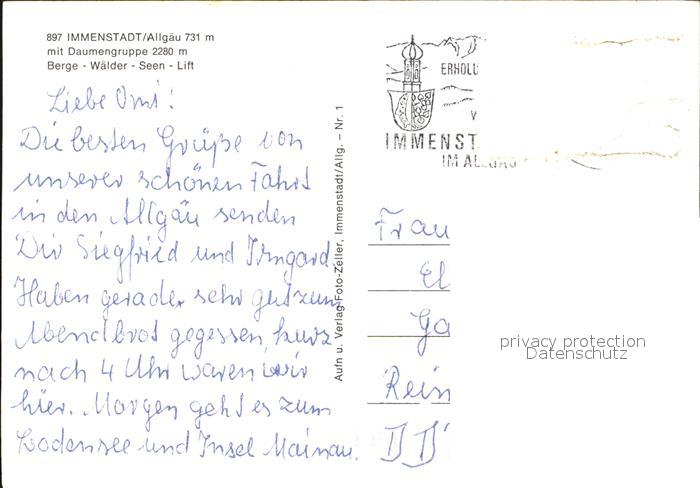 897 IMMENSTADT/Allgäu 731 m
mit Daumengruppe 2280 m
Berge - Wälder - Seen - Lift
Liebe Omi!
Die besten Grüße von
unserer schönen Fahrt
in den Allgäu senden
Dir Siegfried und Irmgard.
Haben gerade sehr gut zum
Abendbrot gegessen, kurz
nach 4 Uhr waren wir
hier. Morgen geht es zum
Bodensee und Insel Mainau.
Aufn u. Verlag Foto-Zeller, Immenstadt/Allg. - Nr. 1
ERHOLU
V
IMMENST
IM ALLGÄU
Frau
El
Ga
Rein
privacy protection
Datenschutz